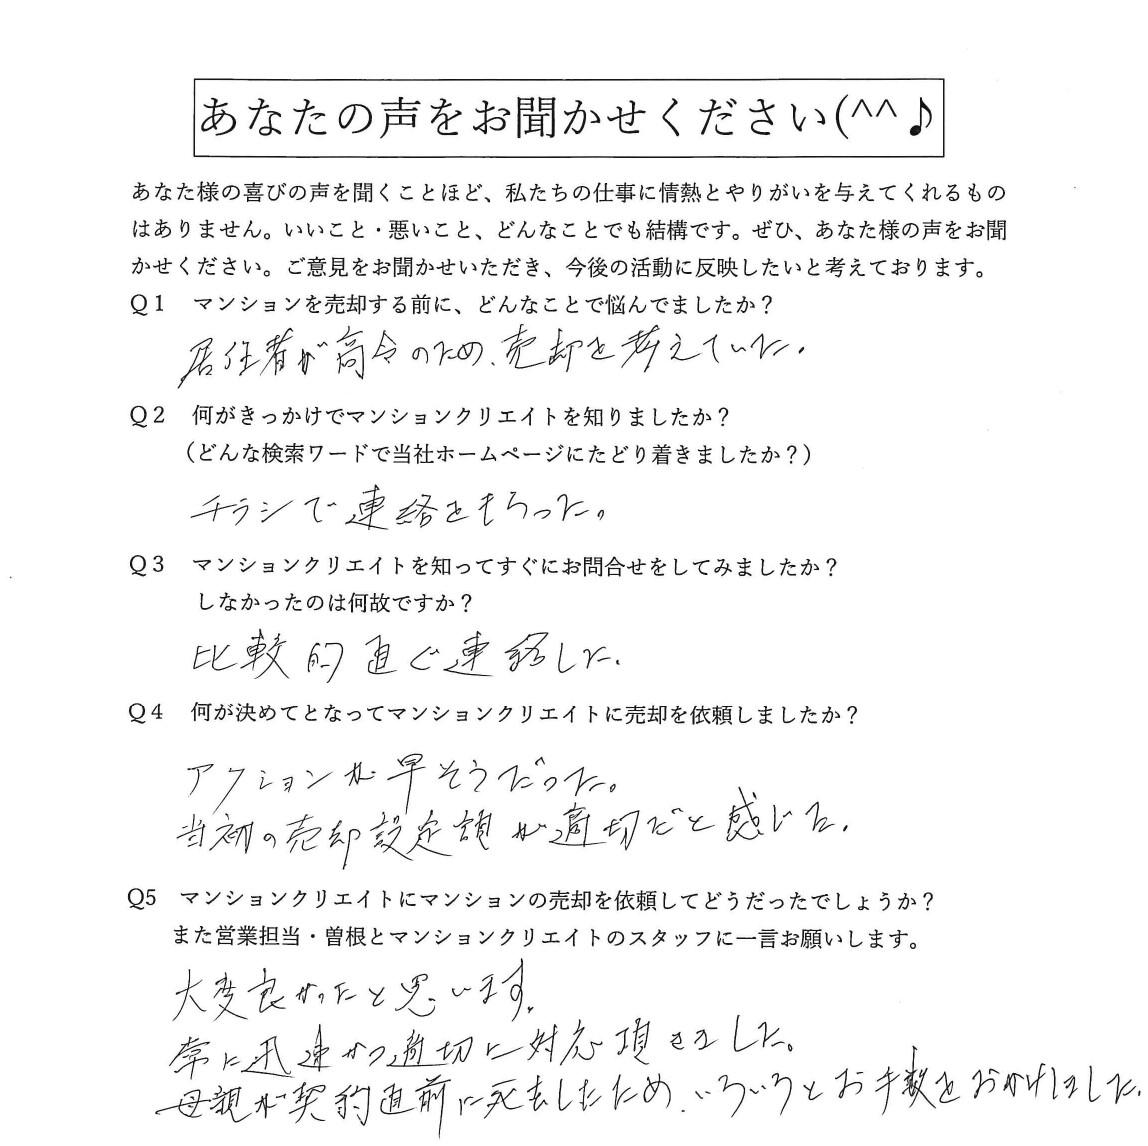 あなたの声をお聞かせください(^^♪
あなた様の喜びの声を聞くことほど、私たちの仕事に情熱とやりがいを与えてくれるもの
はありません。いいこと・悪いこと、どんなことでも結構です。ぜひ、あなた様の声をお聞
かせください。ご意見をお聞かせいただき、今後の活動に反映したいと考えております。
Q1　マンションを売却する前に、どんなことで悩んでましたか？
居住者が高令のため、売却を考えていた。
Q2　何がきっかけでマンションクリエイトを知りましたか？
（どんな検索ワードで当社ホームページにたどり着きましたか？）
チラシで連絡をもらった。
Q3　マンションクリエイトを知ってすぐにお問合せをしてみましたか？
しなかったのは何故ですか？
比較的直ぐ連絡した。
Q4　何が決めてとなってマンションクリエイトに売却を依頼しましたか？
アクションが早そうだった。
当初の売却設定額が適切だと感じた。
Q5　マンションクリエイトにマンションの売却を依頼してどうだったでしょうか？
また営業担当・曽根とマンションクリエイトのスタッフに一言お願いします。
大変良かったと思います。
常に迅速かつ適切に対応頂きました。
母親が契約直前に死去したため、いろいろとお手数をおかけしました。